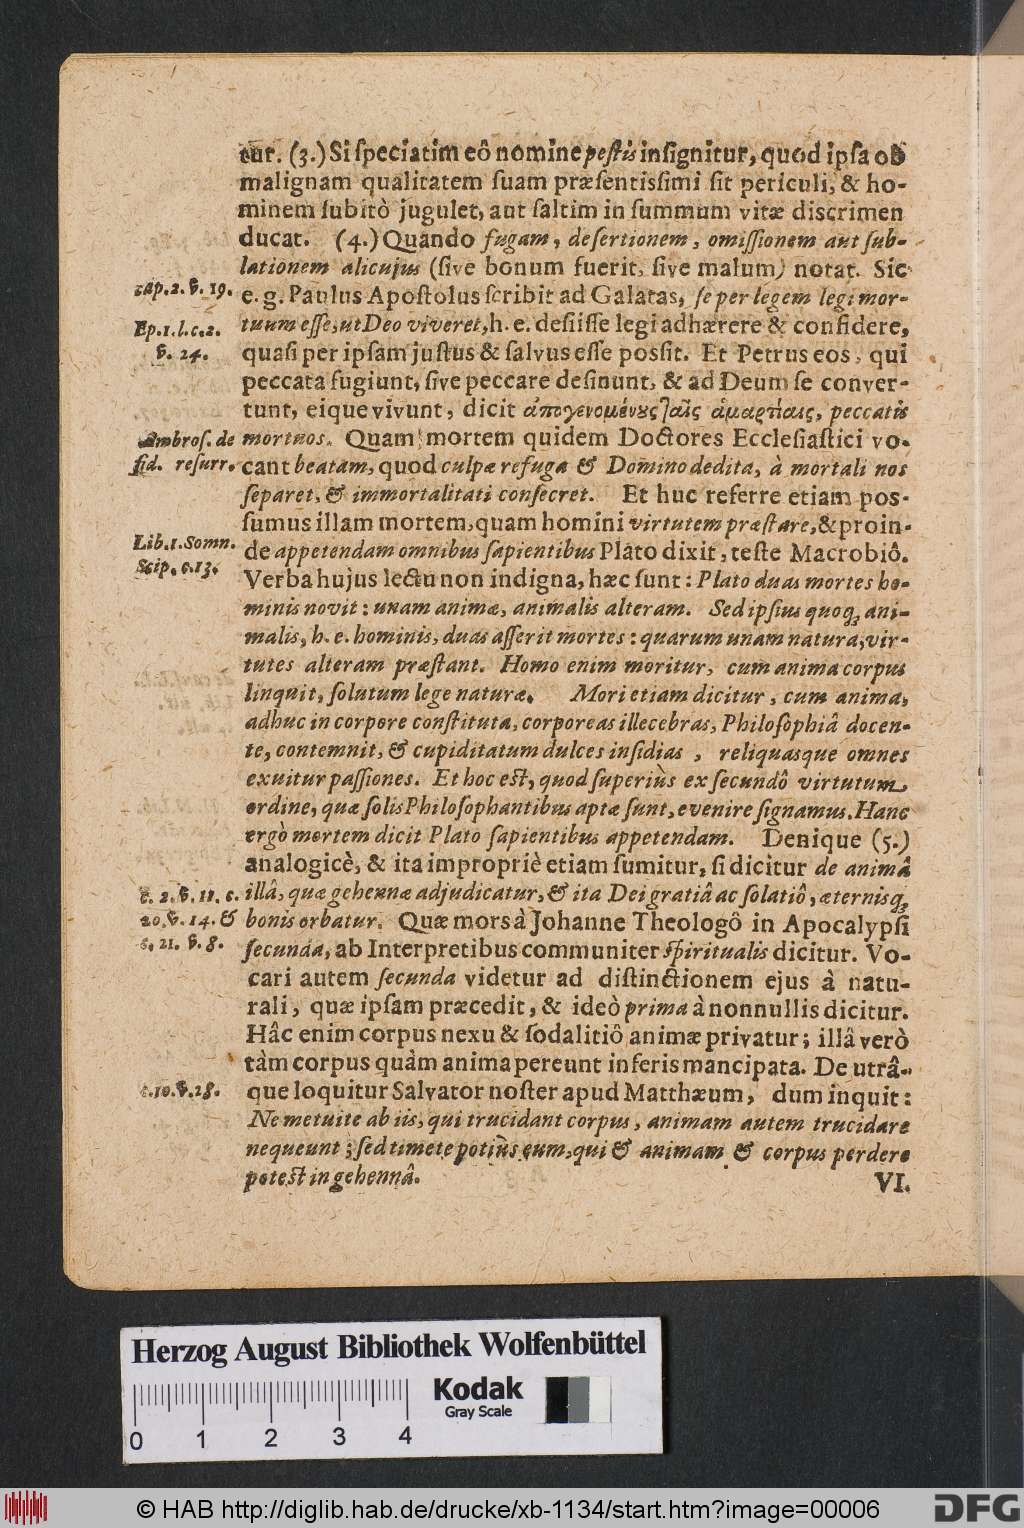 tur. (3.) Si ſpeciatim eô nomine peſtis inſignitur, quod ipſa ob
malignam qualitatem ſuam præſentisſimi ſit periculi, & ho-
minem ſubitò jugulet, aut ſaltim in ſummum vitæ discrimen
ducat. (4.) Quando fugam, deſertionem, omiſſionem aut ſub-
lationem alicujus (ſive bonum fuerit, ſive malum) notat. Sic
cap. 2. v. 19.
e. g. Paulus Apoſtolus ſcribit ad Galatas, ſe per legem legi mor-
Ep. 1. l. c. 2.
tuum eſſe, ut Deo viveret, h. e. deſiiſſe legi adhærere & confidere,
v. 24.
quaſi per ipſam juſtus & ſalvus eſſe poſſit. Et Petrus eos, qui
peccata fugiunt, ſive peccare deſinunt, & ad Deum ſe conver-
tunt, eique vivunt, dicit ἀπογενομένους ταῖς ἁμαρτίαις, peccatis
Ambroſ. de
mortuos. Quam mortem quidem Doctores Eccleſiaſtici vo-
fid. reſurr.
cant beatam, quod culpæ refuga & Domino dedita, à mortali nos
ſeparet, & immortalitati conſecret. Et huc referre etiam pos-
ſumus illam mortem, quam homini virtutem præſtare, & proin-
Lib. 1. Somn.
de appetendam omnibus ſapientibus Plato dixit, teſte Macrobiô.
Scip. c. 13.
Verba hujus lectu non indigna, hæc ſunt: Plato duas mortes ho-
minis novit: unam animæ, animalis alteram. Sed ipſius quoq; ani-
malis, h. e. hominis, duas aſſerit mortes: quarum unam natura, vir-
tutes alteram præſtant. Homo enim moritur, cum anima corpus
linquit, ſolutum lege naturæ. Mori etiam dicitur, cum anima,
adhuc in corpore conſtituta, corporeas illecebras, Philoſophiâ docen-
te, contemnit, & cupiditatum dulces inſidias, reliquasque omnes
exuitur paſſiones. Et hoc eſt, quod ſuperiùs ex ſecundô virtutum
ordine, quæ ſolis Philoſophantibus aptæ ſunt, evenire ſignamus. Hanc
ergò mortem dicit Plato ſapientibus appetendam. Denique (5.)
analogicè, & ita impropriè etiam ſumitur, ſi dicitur de animâ
c. 2. v. 11. c.
illâ, quæ gehennæ adjudicatur, & ita Dei gratiâ ac ſolatiô, æternisq;
20. v. 14. &
bonis orbatur. Quæ mors à Johanne Theologô in Apocalypſi
c. 21. v. 8.
ſecunda, ab Interpretibus communiter ſpiritualis dicitur. Vo-
cari autem ſecunda videtur ad diſtinctionem ejus à natu-
rali, quæ ipſam præcedit, & ideò prima à nonnullis dicitur.
Hâc enim corpus nexu & ſodalitiô animæ privatur; illâ verò
tàm corpus quàm anima pereunt inferis mancipata. De utrâ-
c. 10. v. 28.
que loquitur Salvator noſter apud Matthæum, dum inquit:
Ne metuite ab iis, qui trucidant corpus, animam autem trucidare
nequeunt; ſed timete potiùs eum, qui & animam & corpus perdere
poteſt in gehennâ.
VI.
Herzog August Bibliothek Wolfenbüttel
Kodak
Gray Scale
0 1 2 3 4
© HAB http://diglib.hab.de/drucke/xb-1134/start.htm?image=00006
DFG